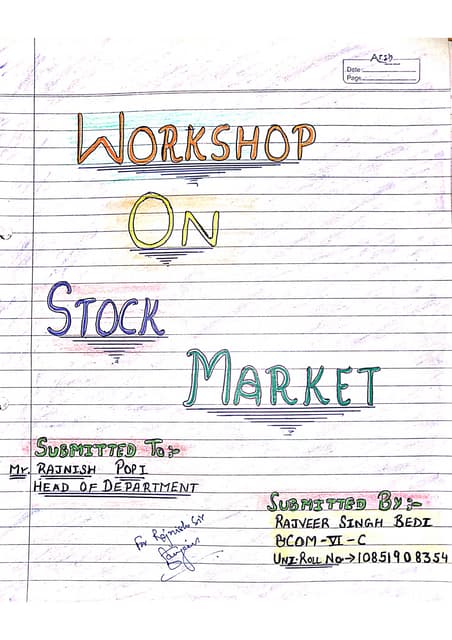 Arsh
Date:
Page
WORKSHOP
ON
STOCK
MARKET
SUBMITTED TO:-
Mr. RAJNISH POPI
HEAD OF DEPARTMENT
SUBMITTED BY:-
RAJVEER SINGH BEDI
BCOM-VI-C
UNI.ROLL No→10851908354
For Rajnish Sir